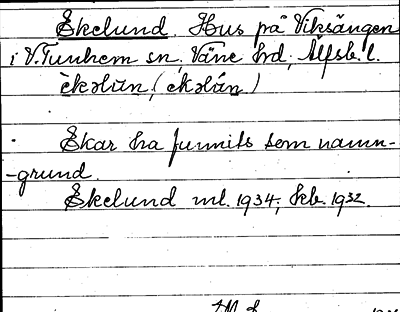 Ekelund. Hus på Viksängen
i V. Tunhem sn, Väne hd, Älfsb. l.
èkəlùn, (ekəlún)
Ekar ha funnits som namn-
-grund.
Ekelund ml. 1934, kb. 1932.